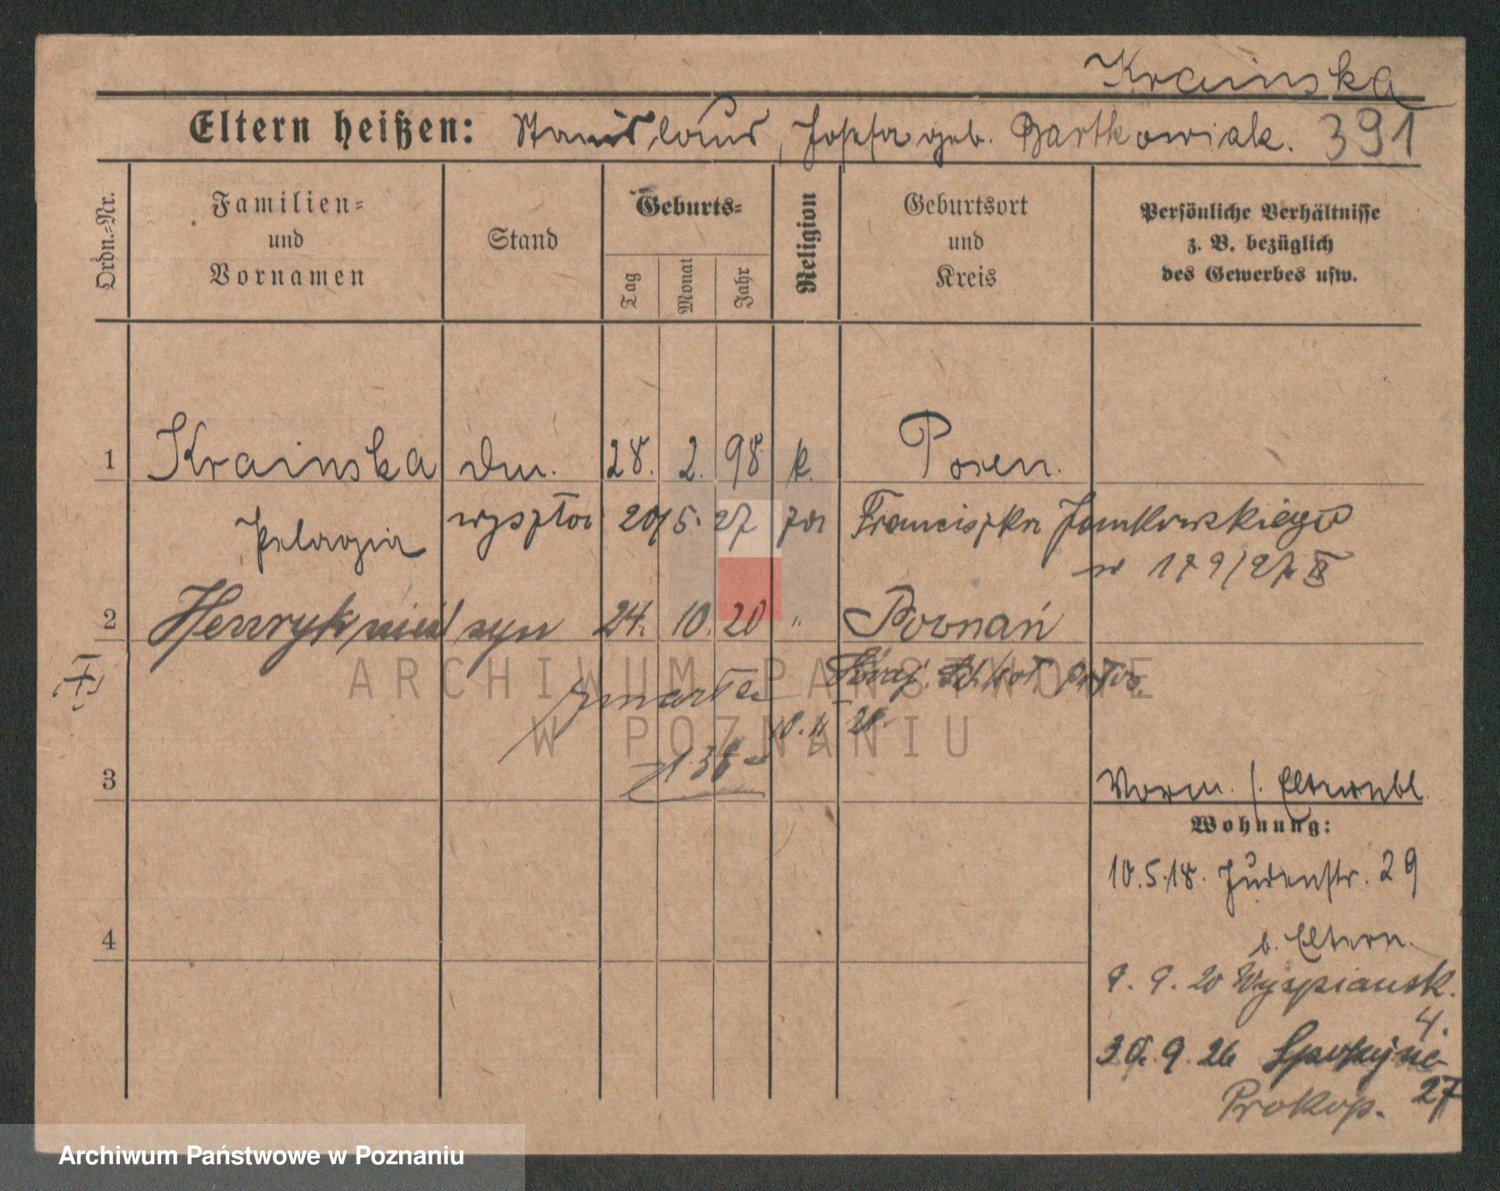 Krainska
Eltern heißen: Stanislaus, Josefa geb. Bartkowiak. 391
Ordn.=Nr.
Familien=
und
Vornamen
Stand
Geburts=
Tag
Monat
Jahr
Religion
Geburtsort
und
Kreis
Persönliche Verhältnisse
z. B. bezüglich
des Gewerbes usw.
1 Krainska 28. 2. 98 k. Posen.
Pelagia 20/5. 27 za Franciszka Jankowskiego
w 179/27 II
2 Henryk syn 24. 10. 20 " Poznań
zmarła
10. 11 20.
3
Vorm. s. Elternbl.
Wohnung:
10.5.18. Judenstr. 29
b. Eltern.
4
9. 9. 20 Wyspiansk.
4.
30. 9. 26 Spokojna
27
Prokop.
ARCHIWUM PAŃSTWOWE
W POZNANIU
Archiwum Państwowe w Poznaniu